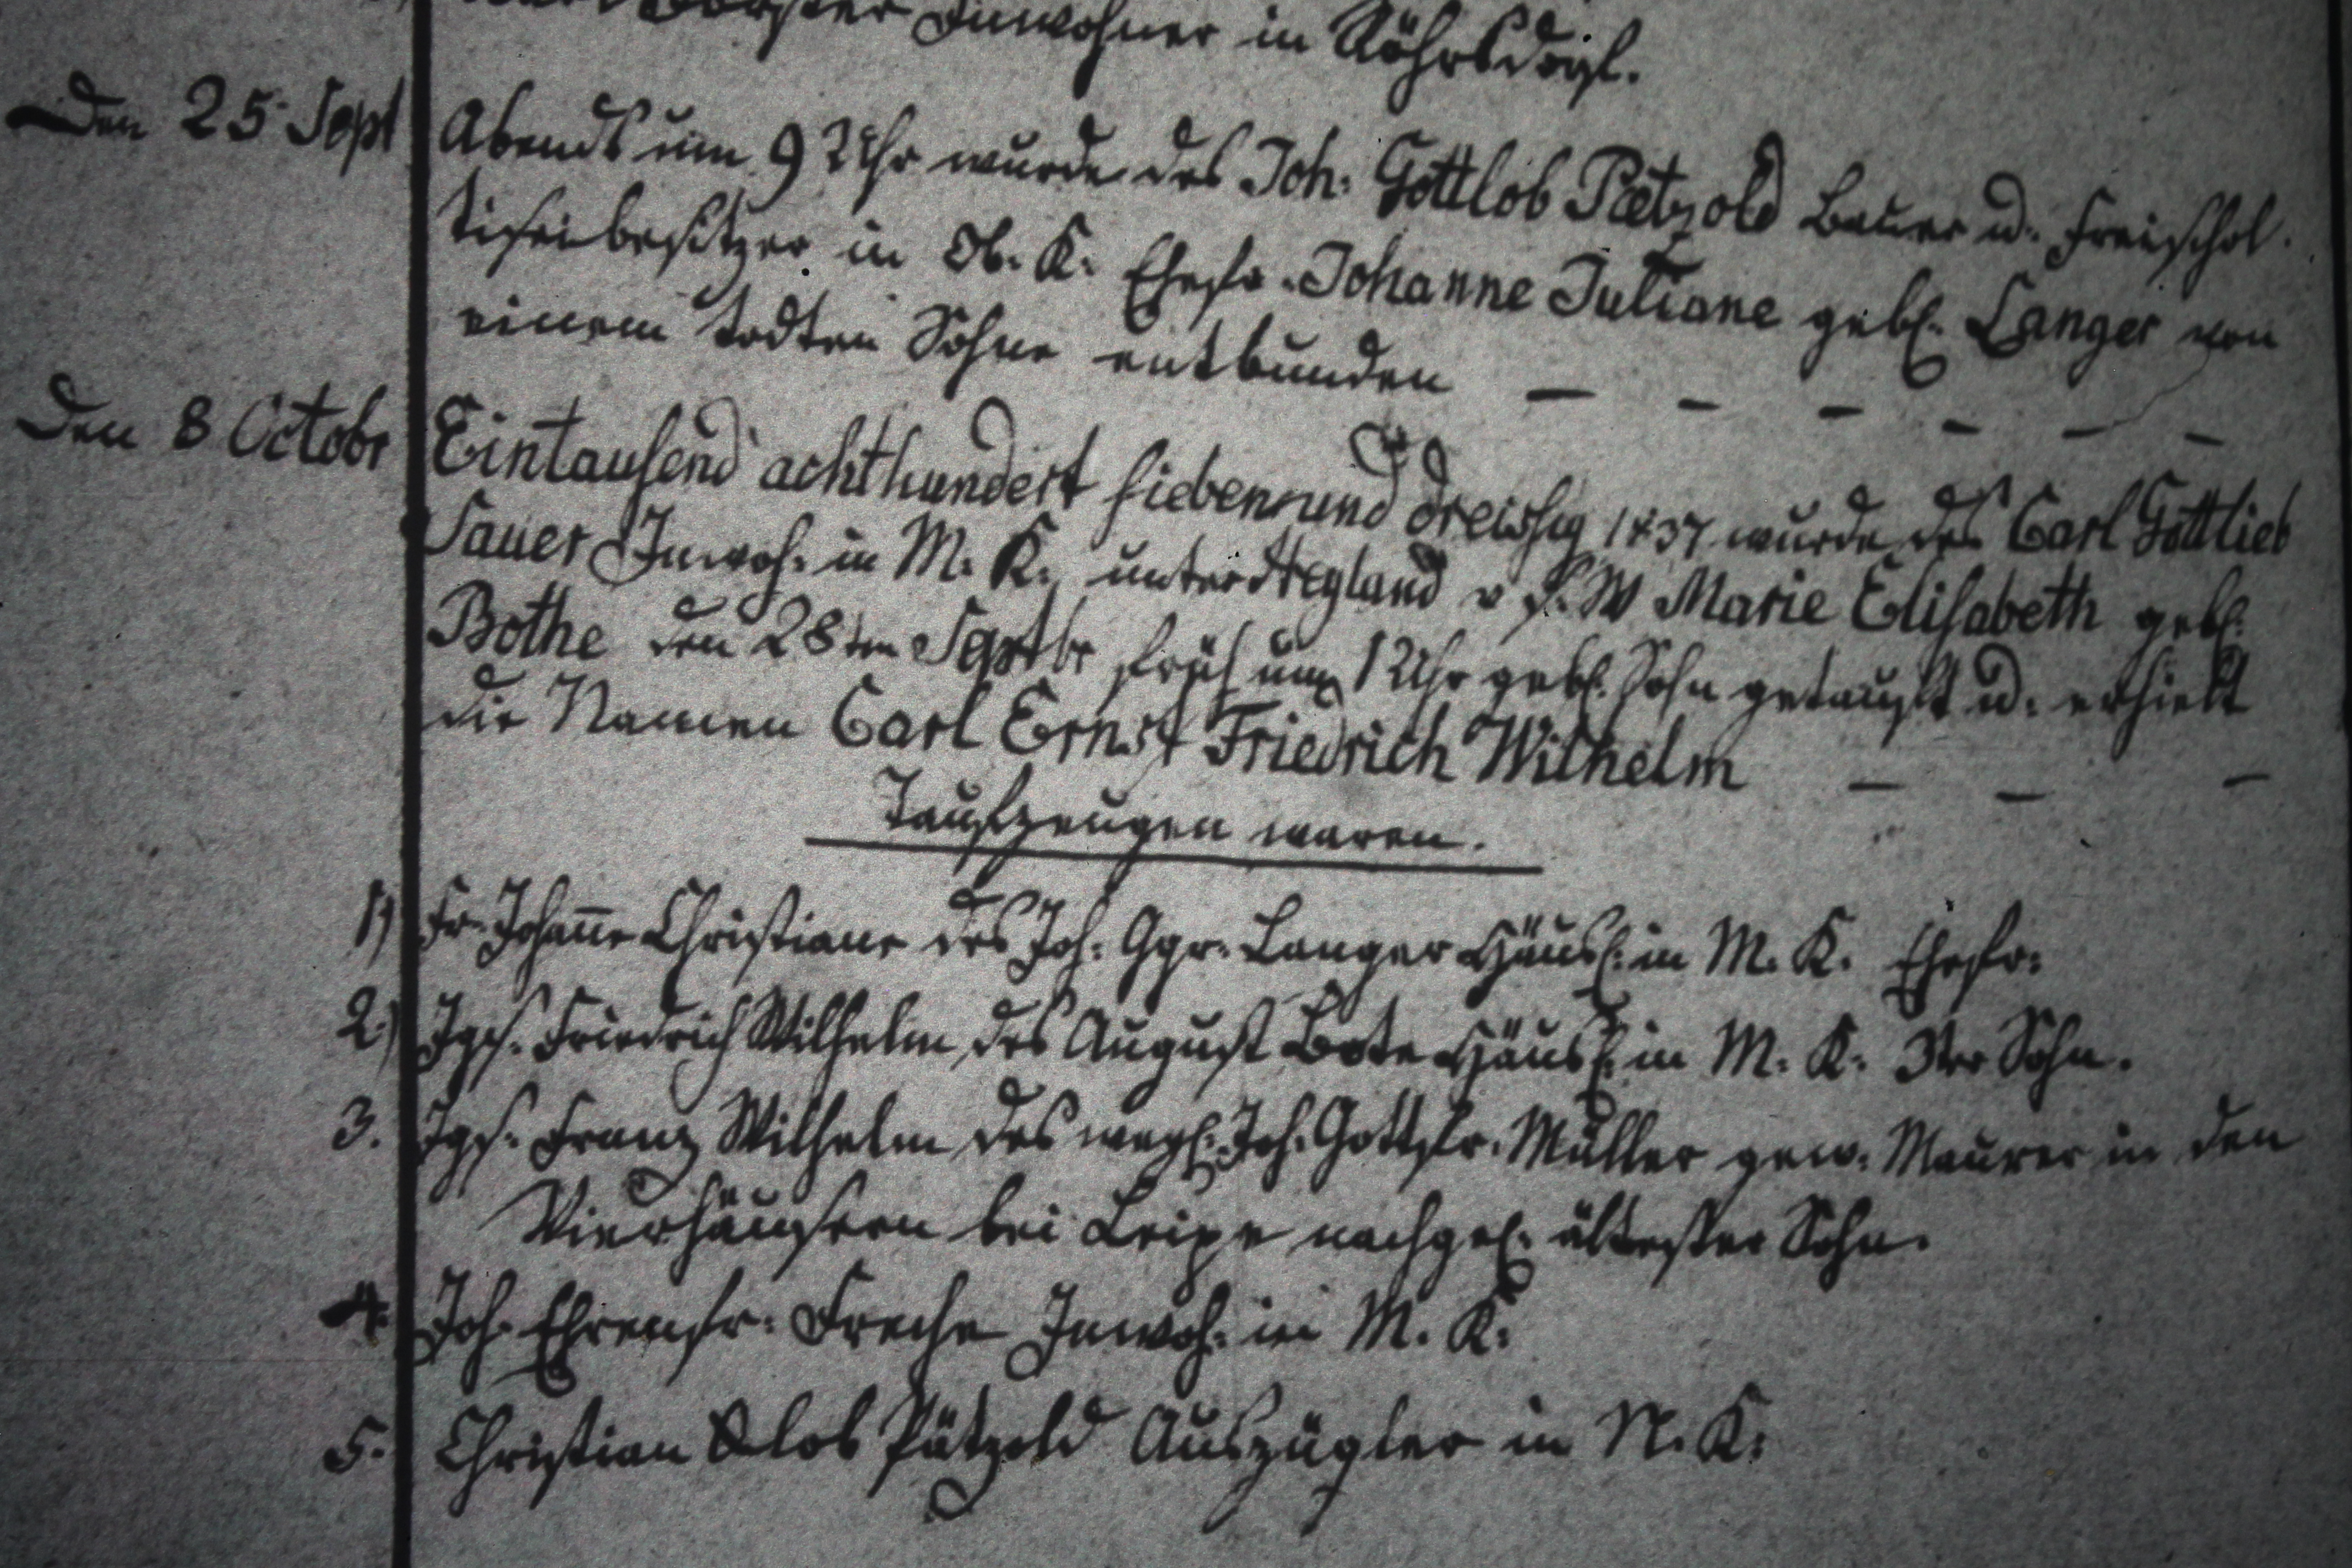 Förster Inwohner in Röhrsdorf.
Den 25 Sept Abends um 9 Uhr wurde des Joh: Gottlob Paetzold Bauer u. Freischol-
tiseibesitzer in Ob. K. Ehefr. Johanne Juliane gebl. Langer von
einem todten Sohne entbunden — — — — — —
Den 8 Octobr Eintausend achthundert siebenund dreissig 1837 wurde des Carl Gottlieb
Sauer Inwoh: in M. K. v s. W Marie Elisabeth gebl.
Bothe den 28ten Septbr früh um 1 Uhr gebl. Sohn getauft u. erhielt
die Namen Carl Ernst Friedrich Wilhelm — — —
Taufzeugen waren.
1) Fr. Johan̄e Christiane des Joh: Ggr. Langer Häusl. in M. K. Ehefr:
2.) Jggs. Friedrich Wilhelm des August Bote Häusl. in M. K. 3ter Sohn.
3. Jggs. Franz Wilhelm des weyl. Joh. Gottfr. Müller gew. Maurer in den
Vierhäusern bei Leipe nachgel. ältester Sohn.
4. Joh. Ehrenfr: Freche Inwoh: in M. K.
5. Christian Glob Pätzold Auszügler in N. K.